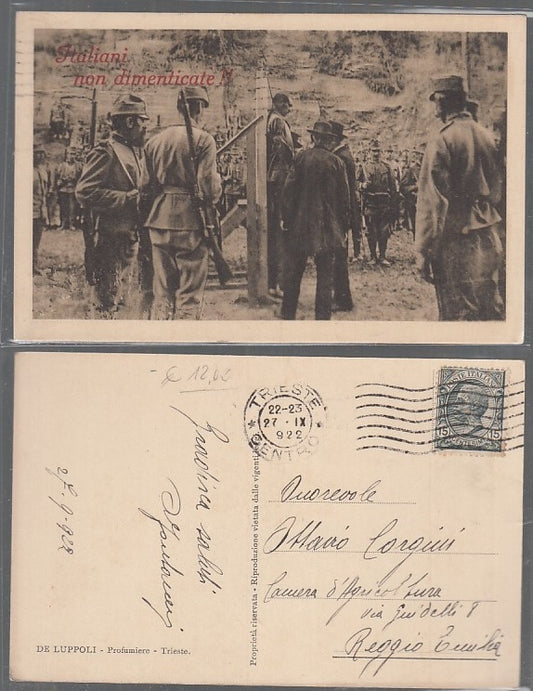 Italiani
non dimenticate!!
€ 12,00
TRIESTE
22-23
27 · IX
922
CENTRO
POSTE ITALIANE
15 15
Gradisca saluti
27.9.922
Onorevole
Ottavio Corgini
Camera d'Agricoltura
via Guidelli 8
Reggio Emilia
Proprietà riservata - Riproduzione vietata dalle vigenti
DE LUPPOLI - Profumiere - Trieste.